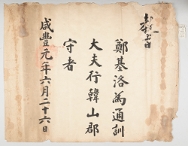 鄭基洛為通訓
大夫行韓山郡
守者
咸豊元年六月二十六日